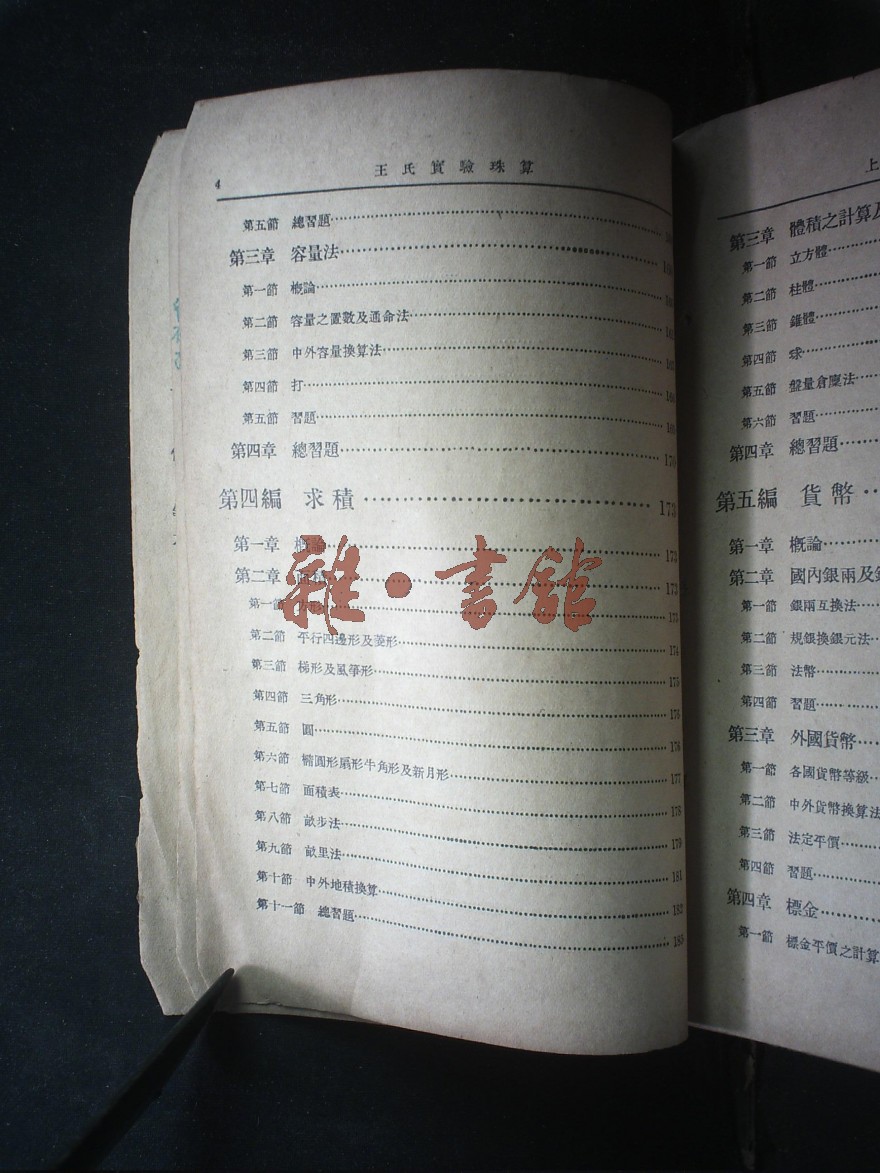 4
王氏實驗珠算
第五節 總習題
第三章 容量法
第一節 概論
第二節 容量之置數及通命法
第三節 中外容量換算法
第四節 打
第五節 習題
第四章 總習題 170
第四編 求積 173
第一章 概論 173
第二章 面積 173
第一節 方形 173
第二節 平行四邊形及菱形 174
第三節 梯形及風箏形 175
第四節 三角形 176
第五節 圓 176
第六節 橢圓形扇形牛角形及新月形 177
第七節 面積表 178
第八節 畝步法 179
第九節 畝里法 181
第十節 中外地積換算 182
第十一節 總習題 185
雜·書館
上
第三章 體積之計算及
第一節 立方體
第二節 柱體
第三節 錐體
第四節 球
第五節 盤量倉廒法
第六節 習題
第四章 總習題
第五編 貨幣
第一章 概論
第二章 國內銀兩及銀
第一節 銀兩互換法
第二節 規銀換銀元法
第三節 法幣
第四節 習題
第三章 外國貨幣
第一節 各國貨幣等級
第二節 中外貨幣換算法
第三節 法定平價
第四節 習題
第四章 標金
第一節 標金平價之計算